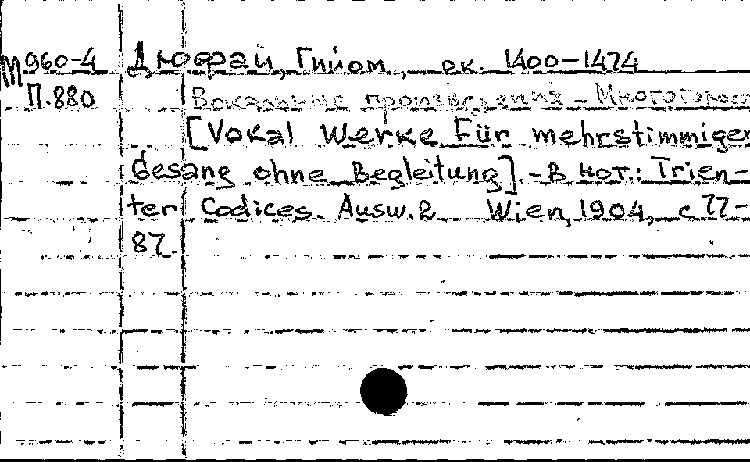 М960-4 Дюфай, Гийом, ок. 1400-1474
П.880 Вокальные произведения - Многоголосн
[Vokal Werke für mehrstimmigen
Gesang ohne Begleitung]. - В нот.: Trien-
ter Codices. Ausw. 2 Wien, 1904, с 77-
87.